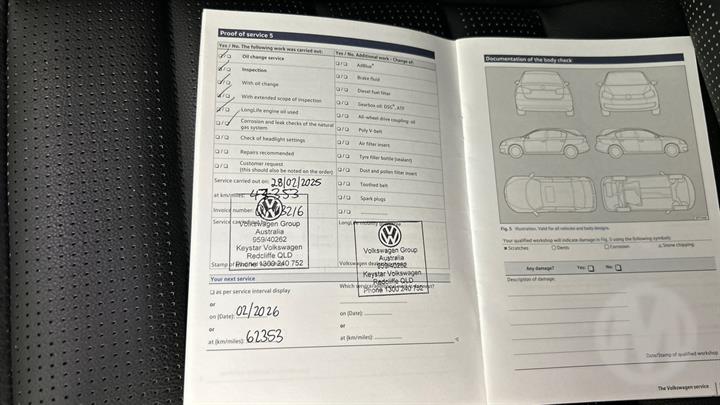 Proof of service 5
Yes / No. The following work was carried out:
Oil change service
Inspection
With oil change
With extended scope of inspection
LongLife engine oil used
Corrosion and leak checks of the natural
gas system
Check of headlight settings
Repairs recommended
Customer request
(this should also be noted on the order)
Service carried out on: 28/02/2025
at km/miles: 47353
Invoice number
Volkswagen Group
Australia
959/40262
Keystar Volkswagen
Redcliffe QLD
Phone 1300 240 752
Stamp of
Yes / No. Additional work - Change of:
AdBlue®
Brake fluid
Diesel fuel filter
Gearbox oil: DSG®, ATF
All-wheel drive coupling: oil
Poly V-belt
Air filter insers
Tyre filler bottle (sealant)
Dust and pollen filter insert
Toothed belt
Spark plugs
Volkswagen Group
Australia
959/40262
Keystar Volkswagen
Redcliffe QLD
Phone 1300 240 752
Your next service
as per service interval display
or
on (Date): 02/2026
or
at (km/miles): 62353
on (Date):
or
at (km/miles):
Documentation of the body check
Fig. 5 Illustration. Valid for all vehicles and body designs.
Your qualified workshop will indicate damage in Fig. 5 using the following symbols:
Scratches Dents Corrosion Stone chipping
Any damage? Yes: No:
Description of damage:
Date/Stamp of qualified workshop
The Volkswagen service